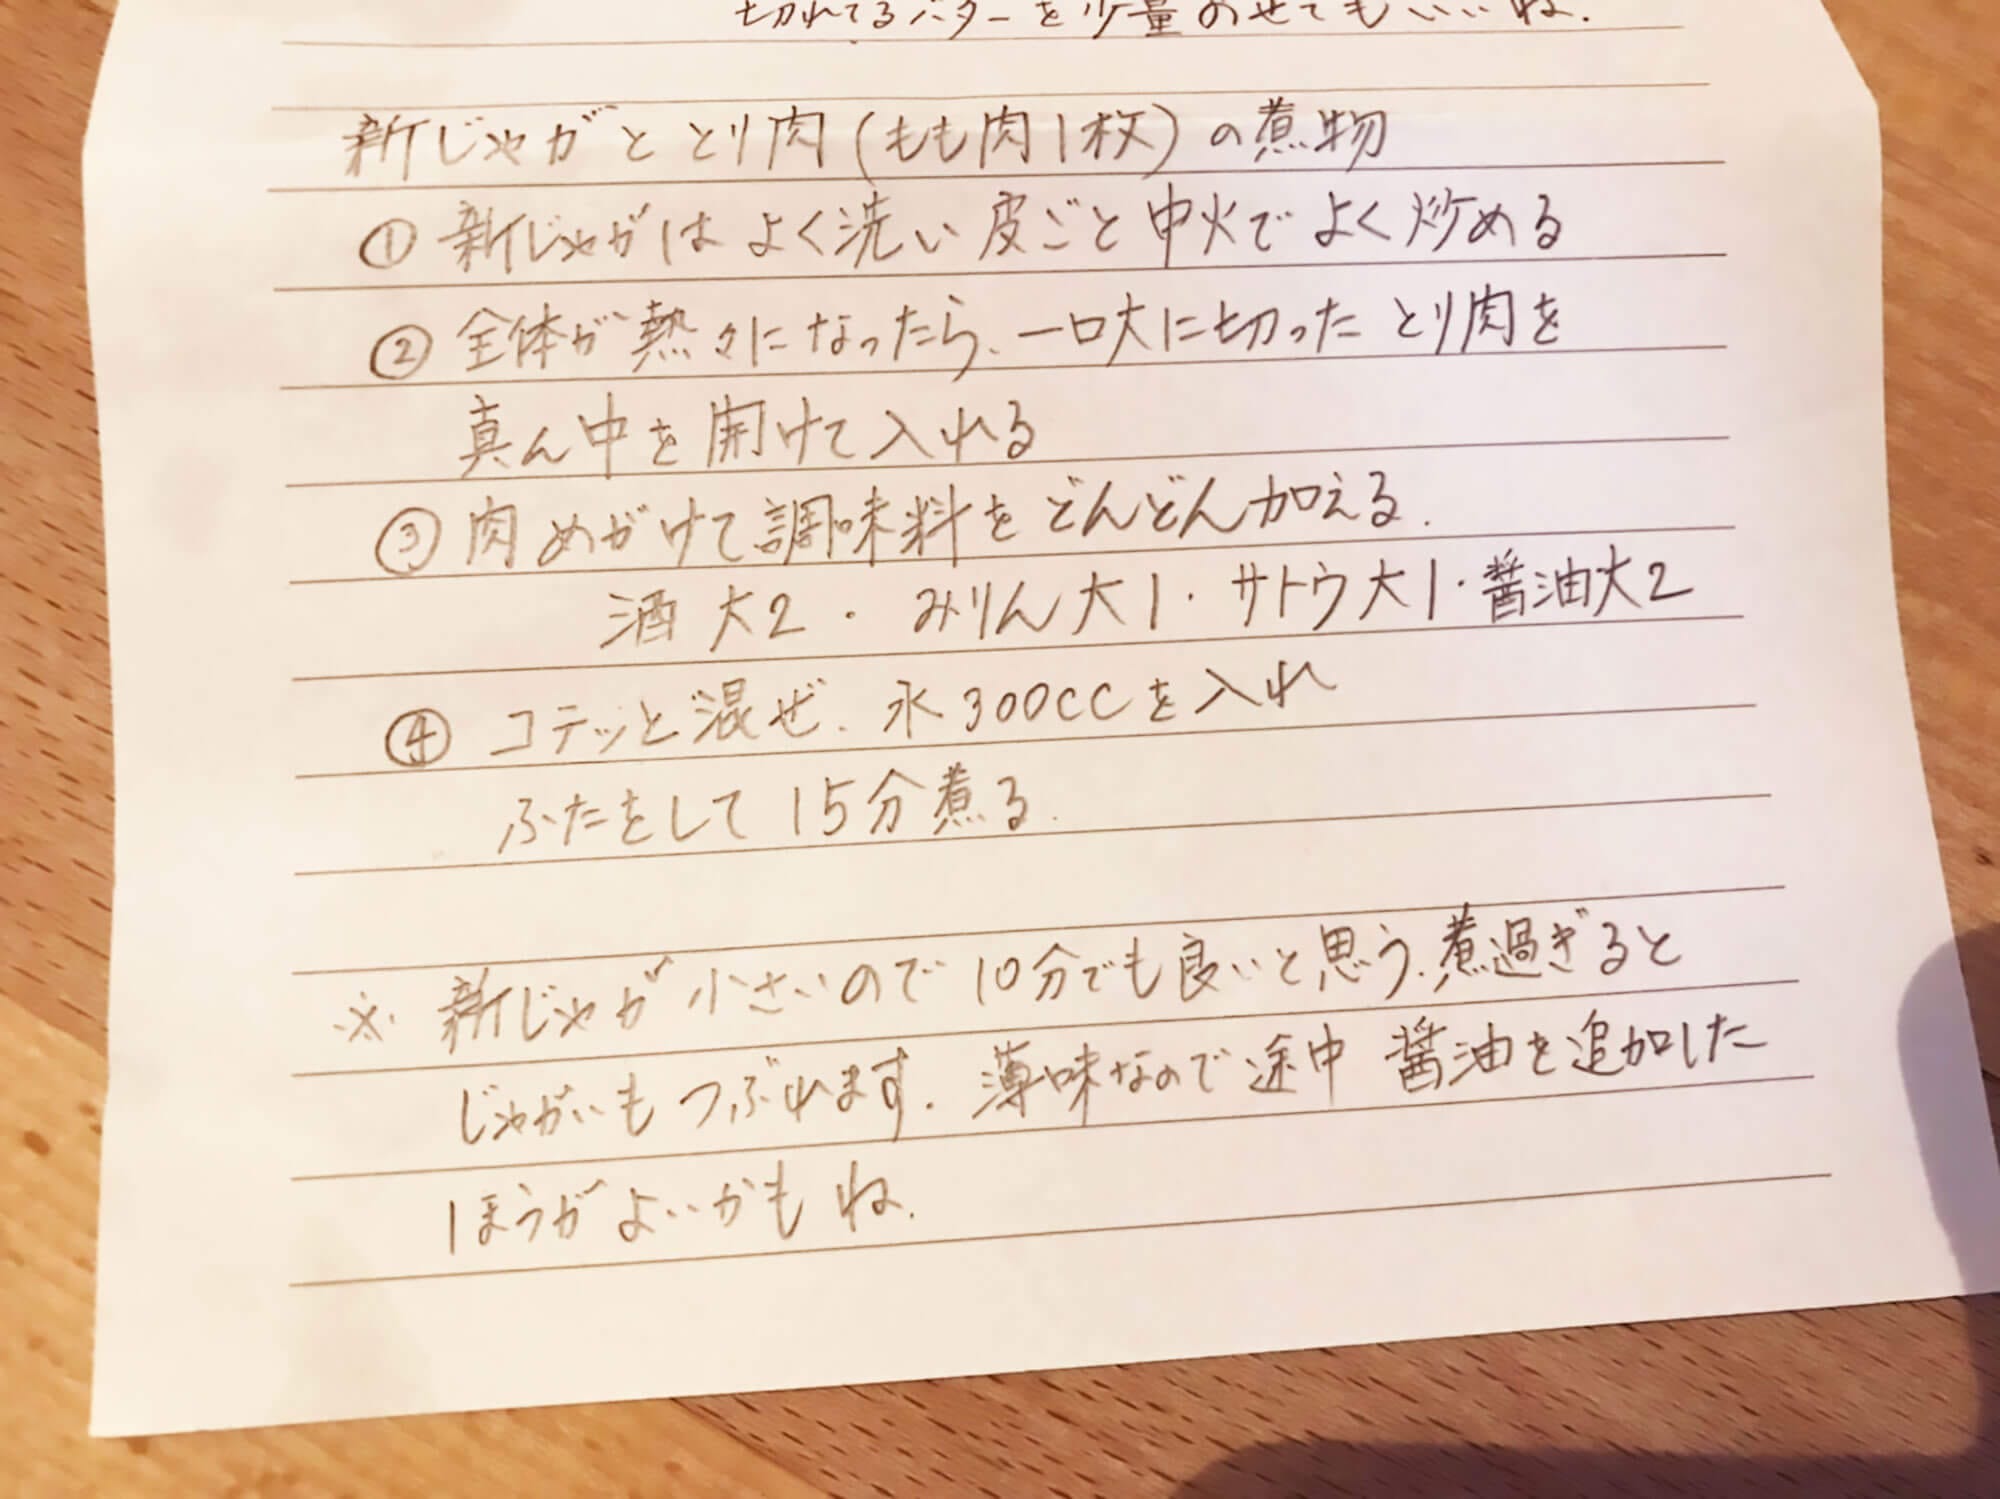 切れてるバターを少量のせてもいいね.
新じゃがととり肉(もも肉1枚)の煮物
① 新じゃがはよく洗い皮ごと中火でよく炒める
② 全体が熱々になったら、一口大に切ったとり肉を
真ん中を開けて入れる
③ 肉めがけて調味料をどんどん加える.
酒大2・みりん大1・サトウ大1・醤油大2
④ コテッと混ぜ、水300CCを入れ
ふたをして15分煮る.
※ 新じゃが小さいので10分でも良いと思う.煮過ぎると
じゃがいもつぶれます.薄味なので途中醤油を追加した
ほうがよいかもね.